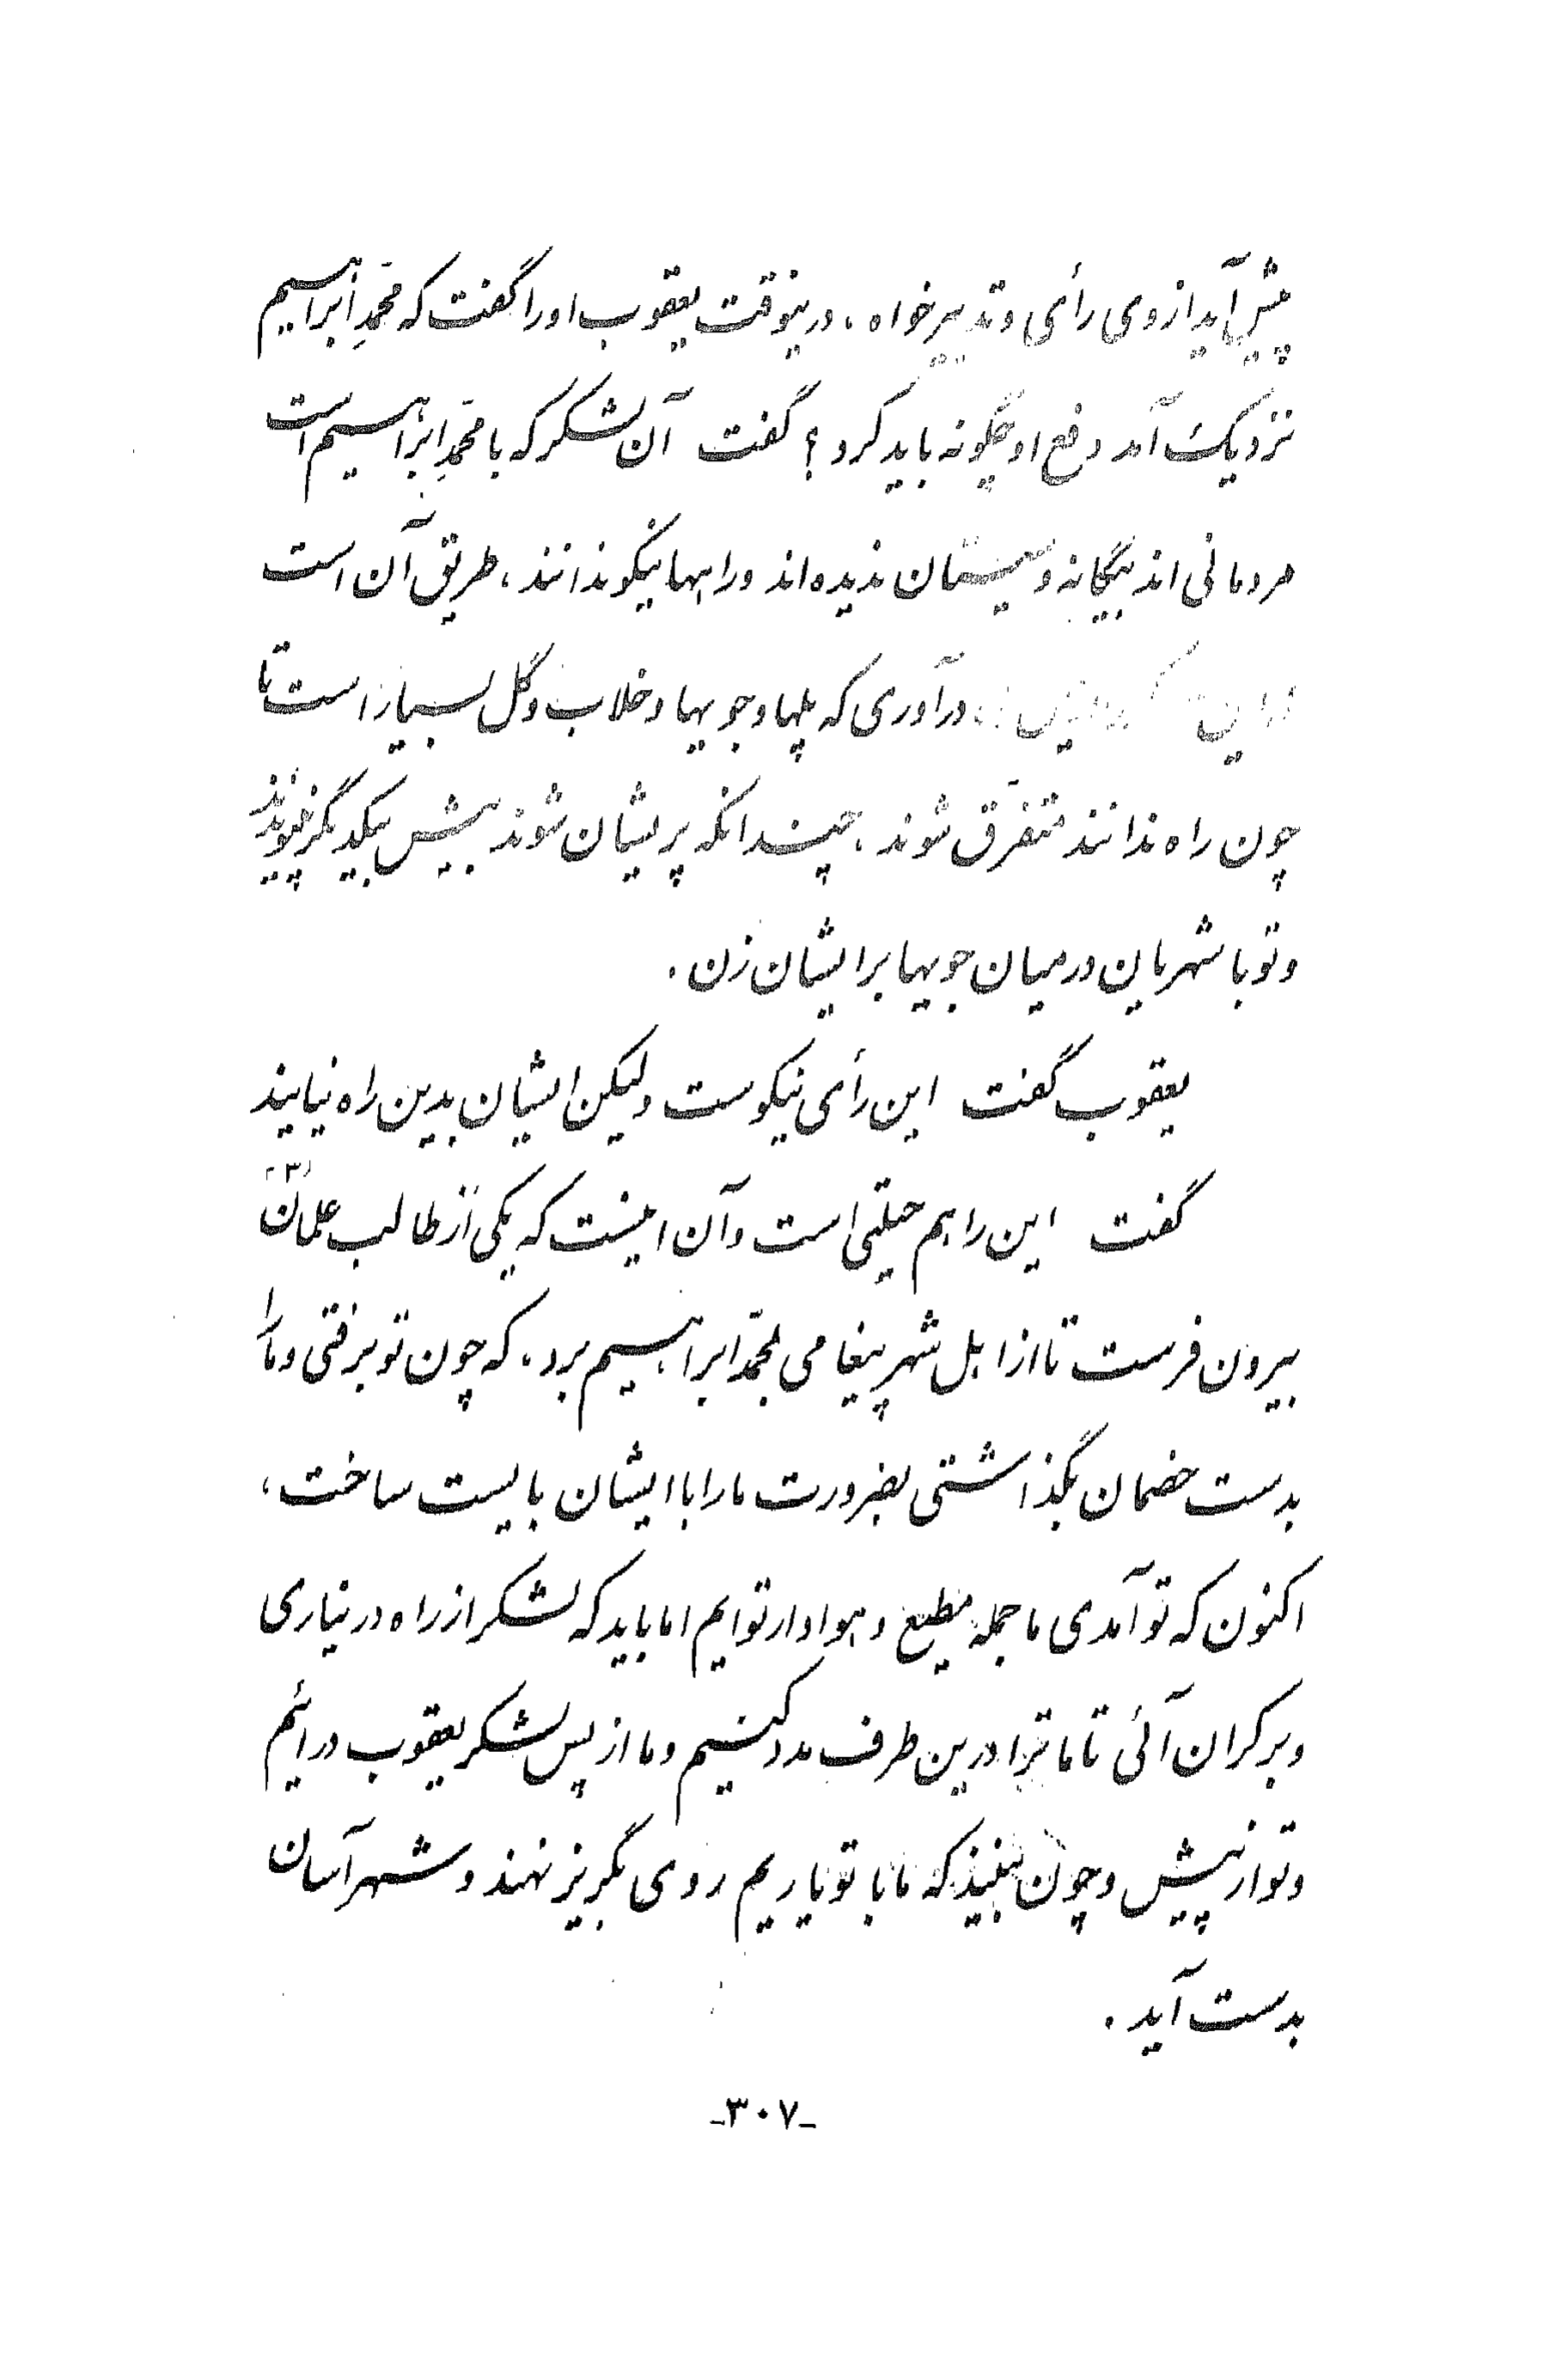 پیش آید از وی رأی و تدبیر خواه، درینوقت یعقوب او را گفت که محمّدِ ابراهیم
نزدیک آمد دفع او چگونه باید کرد؟ گفت آن لشکر که با محمّدِ ابراهیم است
مردمانی اند بیگانه و سیستان ندیده‌اند و راهها نیکو ندانند، طریق آن است
درآوری که پلها و جویها و خلاب و گل بسیار است تا
چون راه ندانند متفرّق شوند، چندانکه پریشان شوند بیش بیکدیگر نپیوندند
و تو با شهریان در میان جویها بر ایشان زن.
یعقوب گفت این رأی نیکوست ولیکن ایشان بدین راه نیایند
گفت این را هم حیلتی است و آن اینست که یکی از طالب علمان (۳)
بیرون فرست تا از اهل شهر پیغامی بمحمّد ابراهیم برد، که چون تو برفتی و ما را
بدست خصمان بگذاشتی بضرورت ما را با ایشان بایست ساخت،
اکنون که تو آمدی ما جمله مطیع و هوادار توایم اما باید که لشکر از راه در نیاری
و بر کران آئی تا ما ترا درین طرف مدد کنیم و ما از پس لشکر یعقوب درائیم
و تو از پیش و چون ببینند که ما با تو یاریم روی بگریز نهند و شهر آسان
بدست آید.
-۳۰۷-